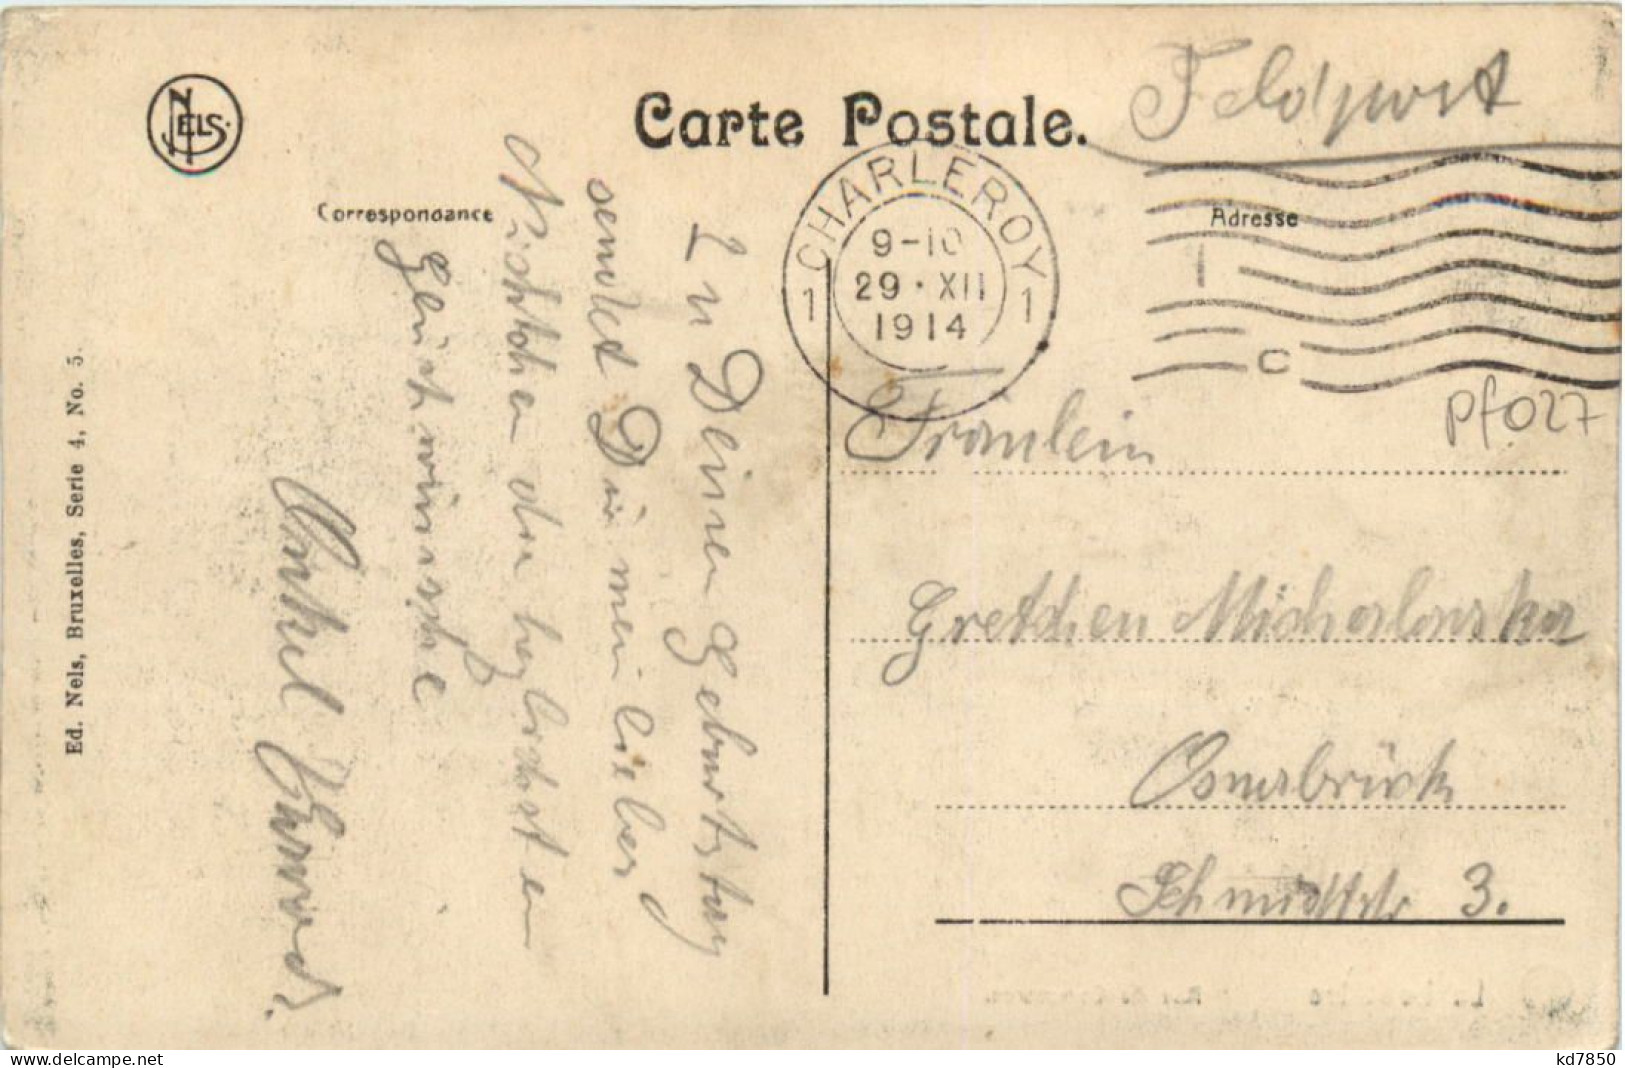 NELS.
Carte Postale.
Feldpost
Correspondance
Adresse
CHARLEROY
9-10
29·XII
1914
1 1
C
pf027
Zu Deinen Geburtstag
sendet Dir mein liebes
Nichtchen die herzlichsten
Glückwünsche
Onkel
Fräulein
Gretchen Michalowska
Osnabrück
Schmidtstr 3.
Ed. Nels, Bruxelles, Serie 4, No. 5.
kd7850
delcampe.net